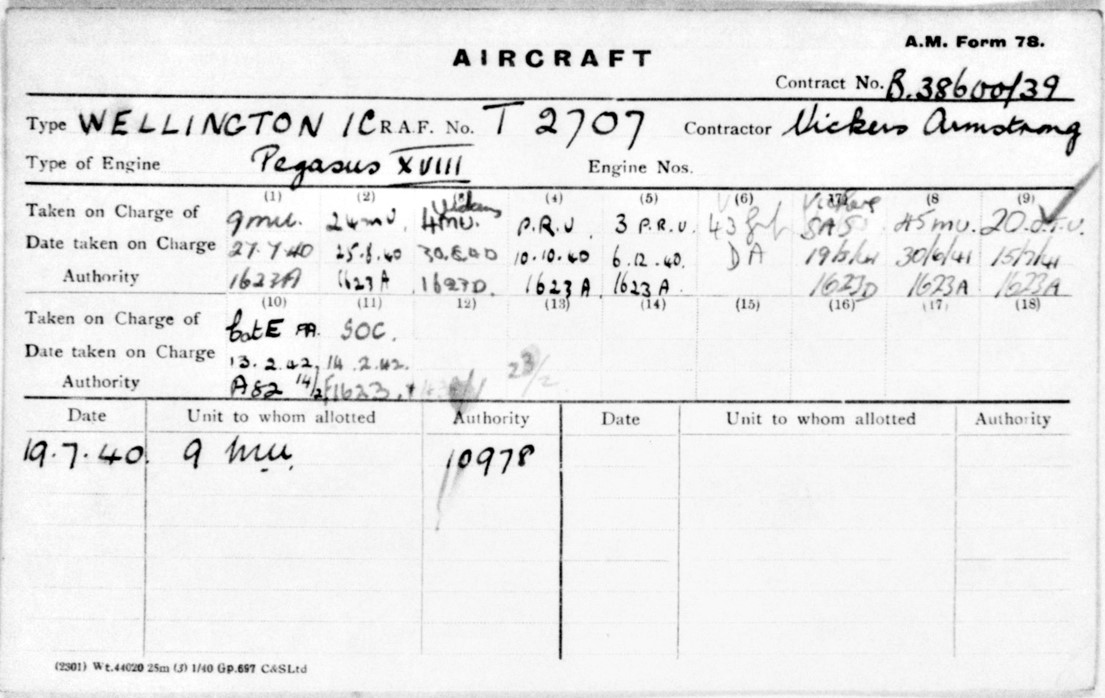 A.M. Form 78.
AIRCRAFT
Contract No. B.38600/39
Type WELLINGTON IC R.A.F. No. T 2707 Contractor Vickers Armstrong
Type of Engine Pegasus XVIII Engine Nos.
(1) (2) (4) (5) (6) (8 (9)
Taken on Charge of 9 mu. 24 mu. Vickers 4 mu. P.R.U. 3 P.R.U. 43 Vickers SAS 45 mu. 20.O.T.U.
Date taken on Charge 27.7.40 25.8.40 30.8.40 10.10.40 6.12.40. DA 19/5/41 30/6/41 15/7/41
Authority 1623A 1623A 1623D. 1623A 1623A. 1623D 1623A 1623A
(10) (11) 12) (13) (14) (15) (16) (17) (18)
Taken on Charge of Cat E FA. SOC.
Date taken on Charge 13.2.42, 14.2.42. 23/2
Authority A82 14/2 1623.
Date Unit to whom allotted Authority Date Unit to whom allotted Authority
19.7.40. 9 mu. 10978
(2301) Wt.44020 25m (3) 1/40 Gp.697 C&SLtd